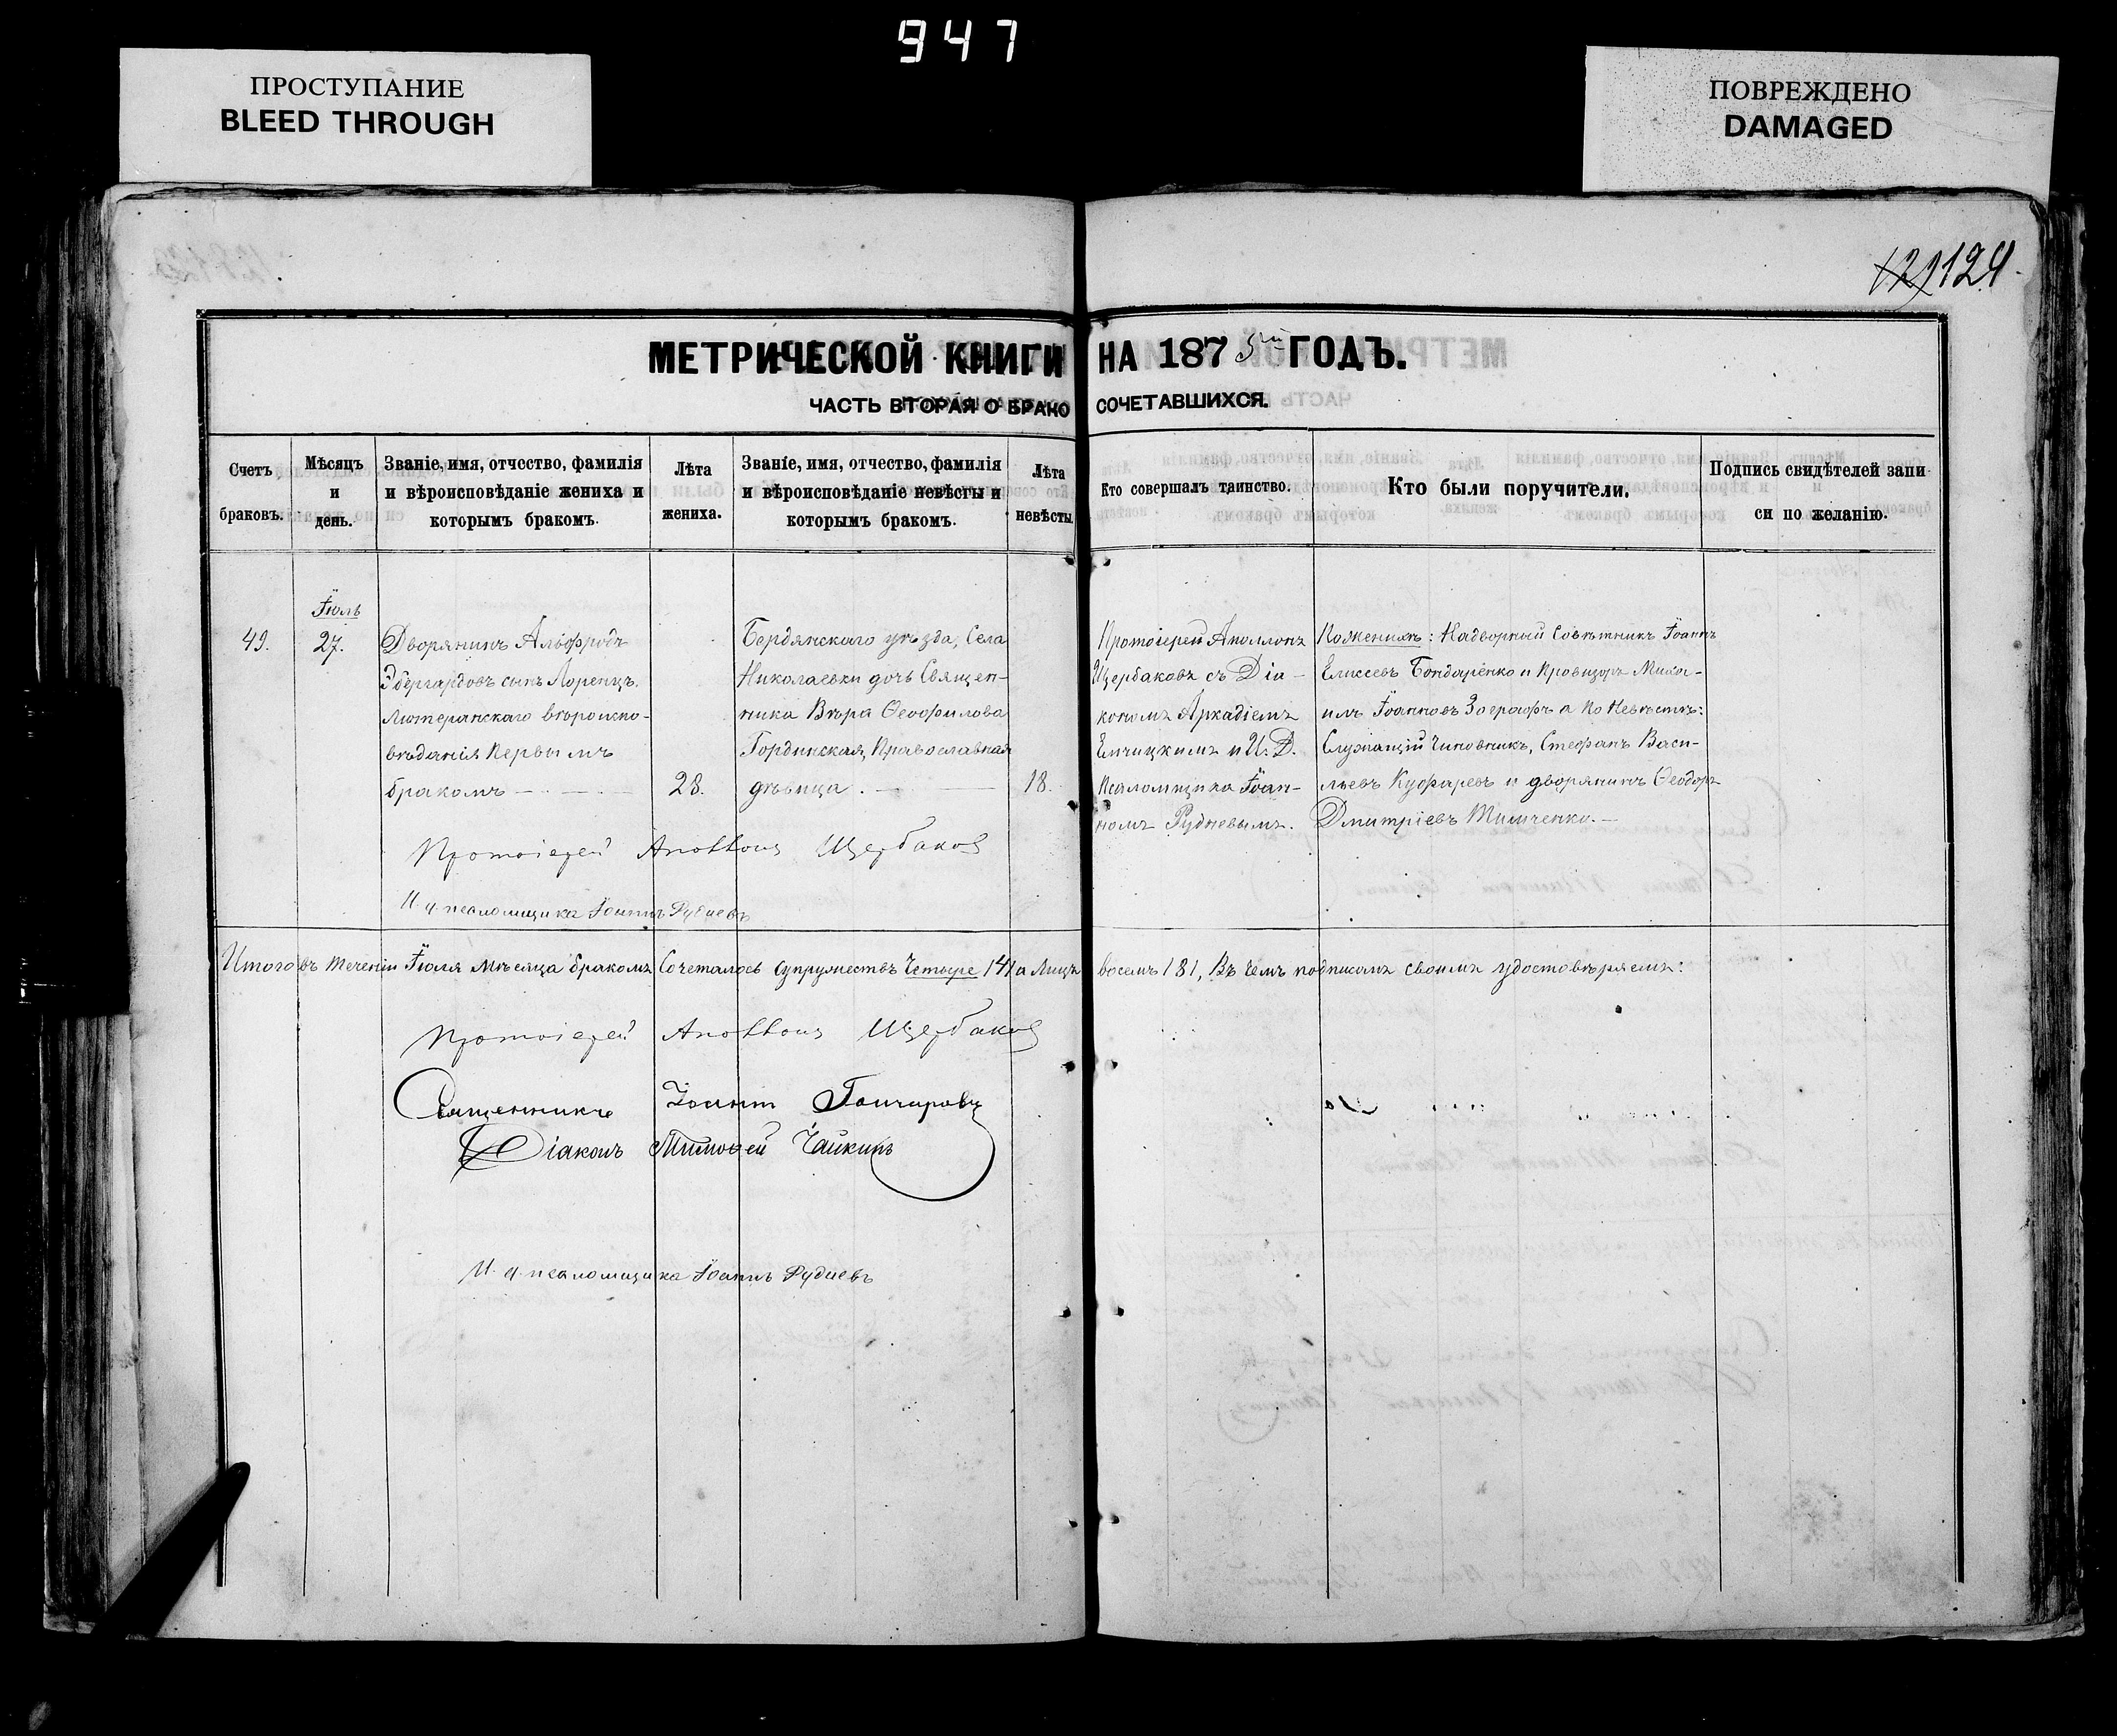 947
ПРОСТУПАНИЕ
BLEED THROUGH
ПОВРЕЖДЕНО
DAMAGED
129 124.
МЕТРИЧЕСКОЙ КНИГИ НА 1875й ГОДЪ.
ЧАСТЬ ВТОРАЯ О БРАКОСОЧЕТАВШИХСЯ.
Счетъ браковъ.
Мѣсяцъ и день.
Званіе, имя, отчество, фамилія
и вѣроисповѣданіе жениха и
которымъ бракомъ.
Лѣта жениха.
Званіе, имя, отчество, фамилія
и вѣроисповѣданіе невѣсты и
которымъ бракомъ.
Лѣта невѣсты
Кто совершалъ таинство.
Кто были поручители.
Подпись свидѣтелей запи
си по желанію.
49.
Іюль
27.
Дворянинъ Альфродъ
Эбергардовъ сынъ Лоренцъ.
Лютеранскаго вѣроиспо-
вѣданія первымъ
бракомъ
28.
Бердянскаго уѣзда, Села
Николаевки дочь Священ-
ника Вѣра Ѳеофилова
Гординская, Православная
дѣвица.
18.
Протоіерей Аполлонъ
Щербаковъ съ Діа-
кономъ Аркадіемъ
Енчицкимъ и И. Д.
Псаломщика Іоан-
номъ Рудневымъ.
По женихѣ: Надворный Совѣтникъ Іоаннъ
Елисеевъ Бондаренко и Провизоръ Миха-
илъ Іоанновъ Зографъ а по Невѣстѣ:
Служащій Чиновникъ, Стефанъ Васи-
льевъ Куфаревъ и дворянинъ Ѳеодоръ
Дмитріевъ Тимченко.
Протоіерей Аполлонъ Щербаковъ
И. д. псаломщика Іоаннъ Рудневъ
Итого въ теченіи Іюля мѣсяца бракомъ Сочеталось супружествъ Четыре /4/ а Лицъ восемь /8/, Въ чемъ подписомъ своимъ удостовѣряемъ:
Протоіерей Аполлонъ Щербаковъ
Священникъ Іоаннъ Гончаровъ
Діаконъ Тимофей Чайкинъ
И. д. псаломщика Іоаннъ Рудневъ